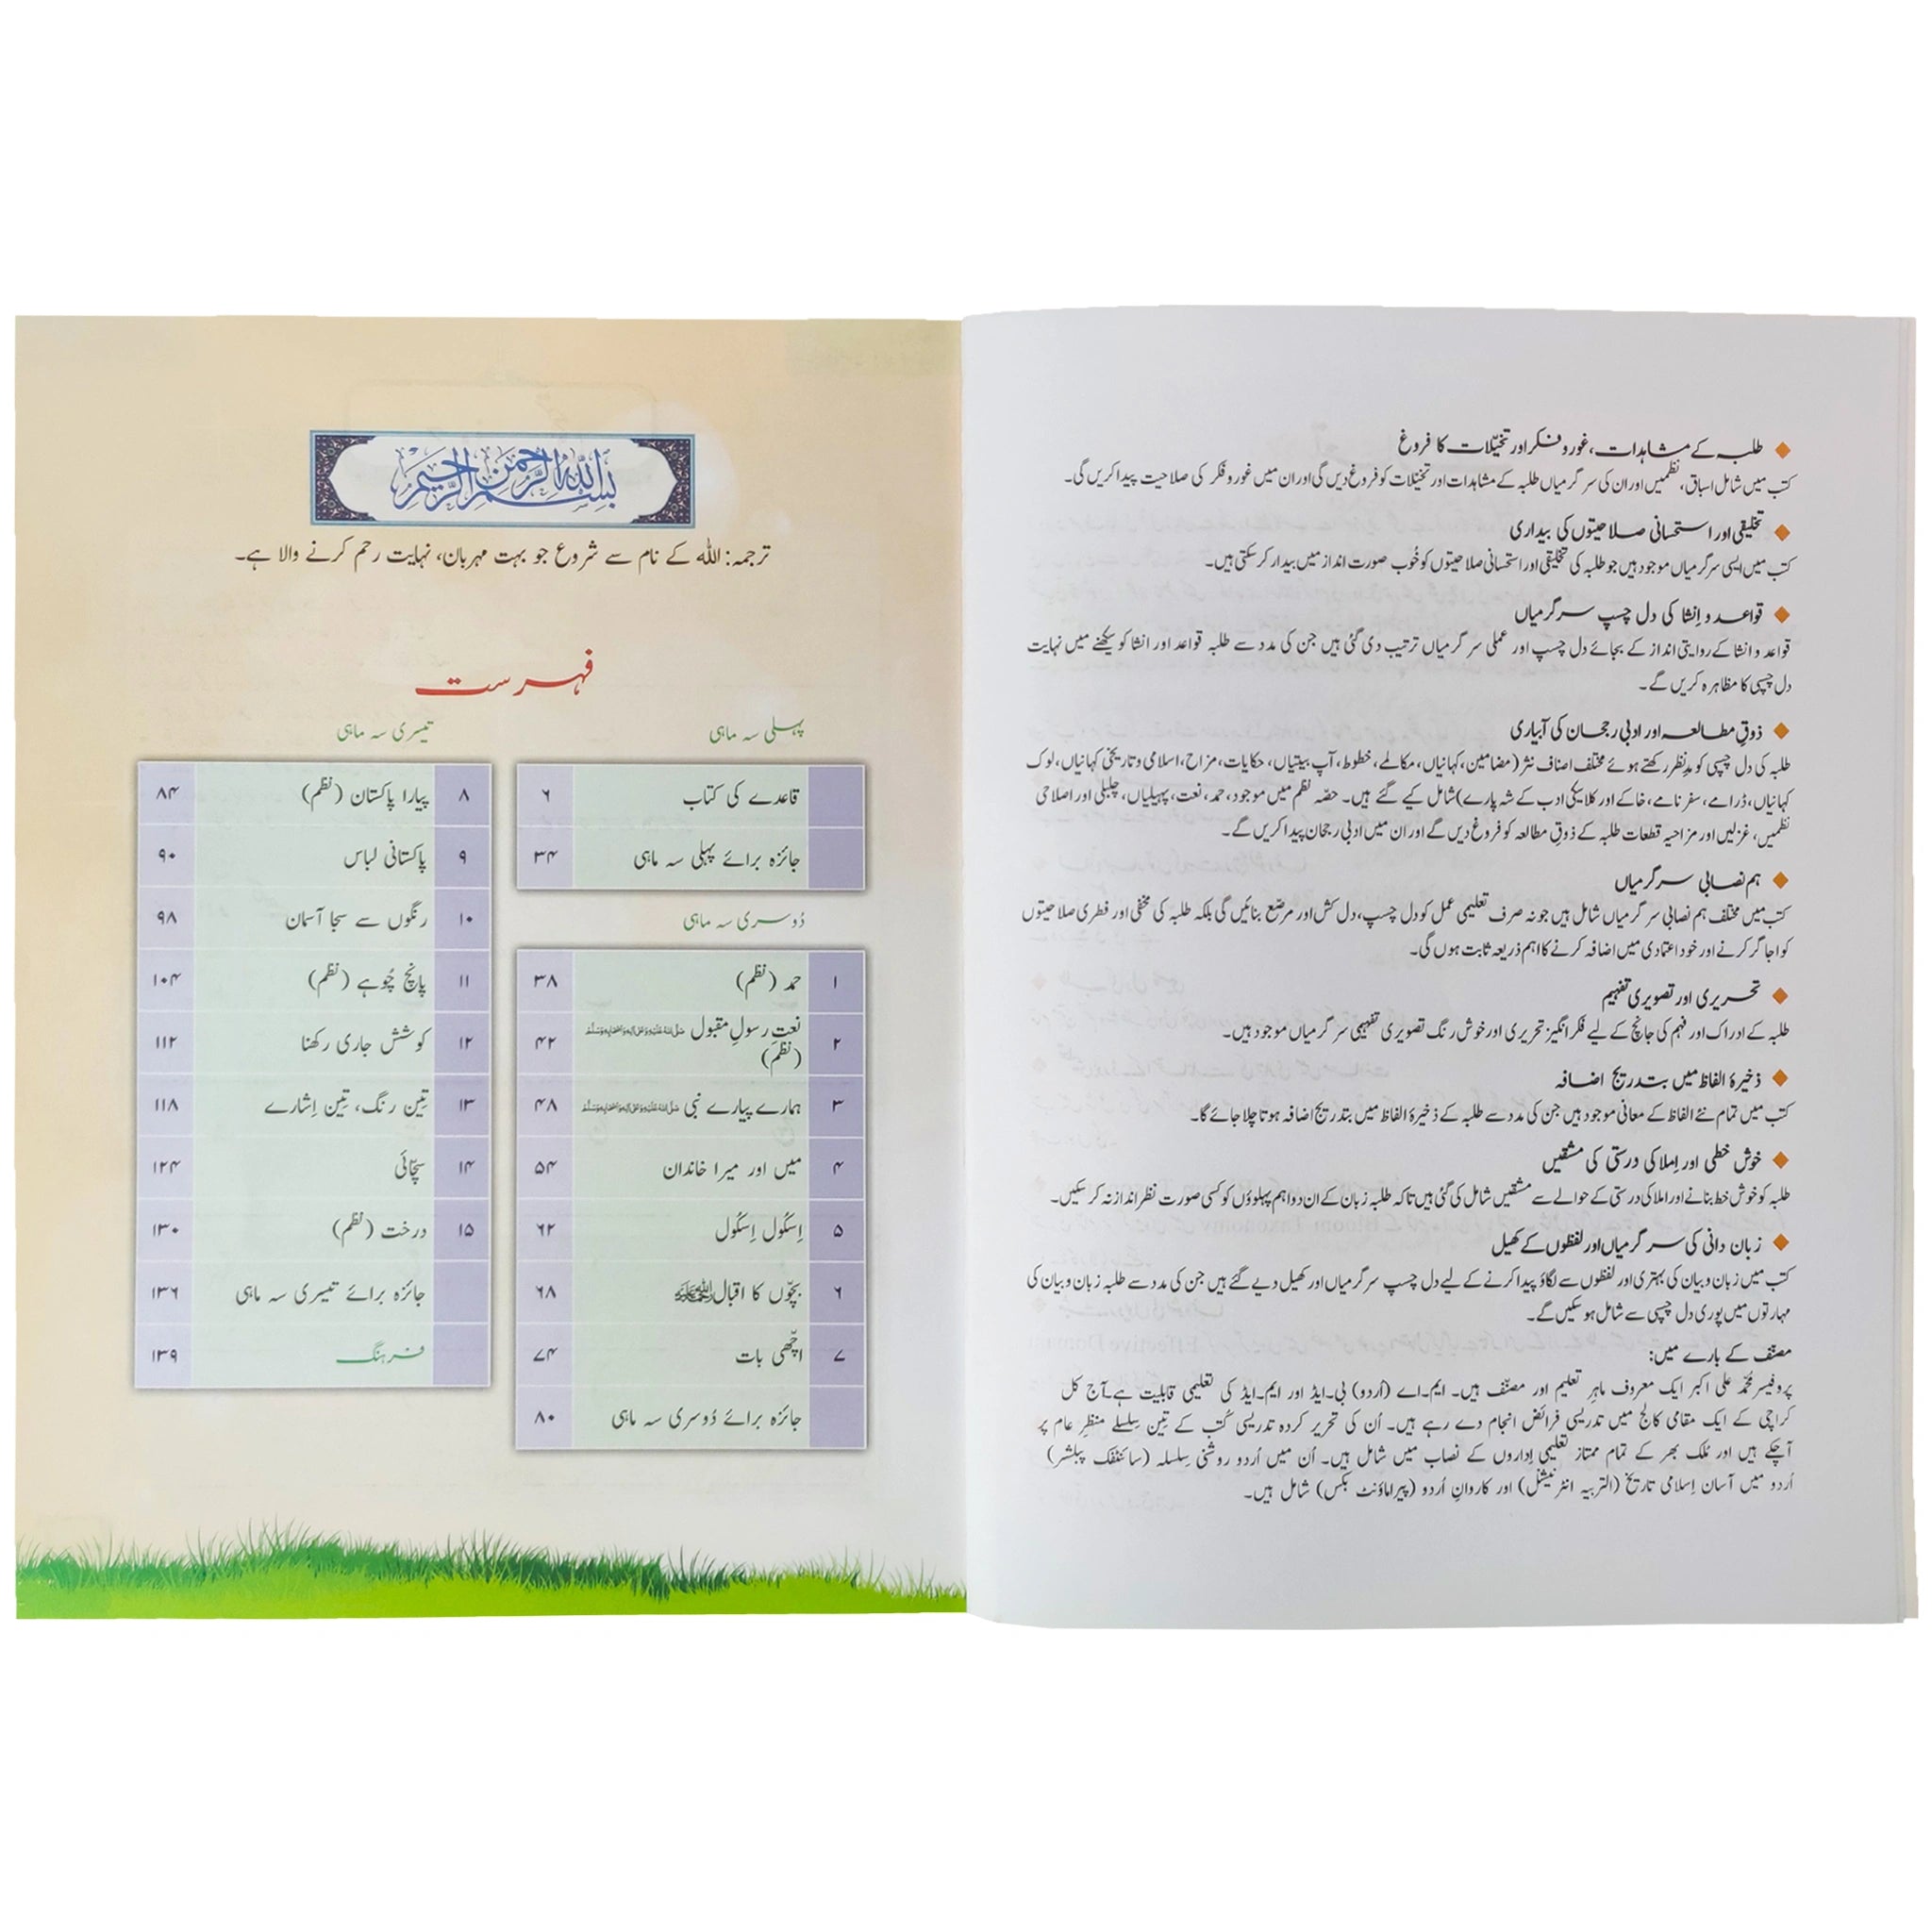 طلبہ کے مشاہدات، غور و فکر اور تخیّلات کا فروغ
کتب میں شامل اسباق، نظمیں اور ان کی سرگرمیاں طلبہ کے مشاہدات اور تخیّلات کو فروغ دیں گی اور ان میں غور و فکر کی صلاحیت پیدا کریں گی۔
تخلیقی اور استحسانی صلاحیتوں کی بیداری
کتب میں ایسی سرگرمیاں موجود ہیں جو طلبہ کی تخلیقی اور استحسانی صلاحیتوں کو خُوب صورت انداز میں بیدار کر سکتی ہیں۔
قواعد و اِنشا کی دل چسپ سرگرمیاں
قواعد و انشا کے روایتی انداز کے بجائے دل چسپ اور عملی سرگرمیاں ترتیب دی گئی ہیں جن کی مدد سے طلبہ قواعد اور انشا کو سیکھنے میں نہایت
دل چسپی کا مظاہرہ کریں گے۔
ذوقِ مطالعہ اور ادبی رجحان کی آبیاری
طلبہ کی دل چسپی کو مدِ نظر رکھتے ہوئے مختلف اصنافِ نثر (مضامین، کہانیاں، مکالمے، خطوط، آپ بیتیاں، حکایات، مزاح، اسلامی و تاریخی کہانیاں، لوک
کہانیاں، ڈرامے، سفر نامے، خاکے اور کلاسیکی ادب کے شہ پارے) شامل کیے گئے ہیں۔ حصّہ نظم میں موجود، حمد، نعت، پہیلیاں، چلبلی اور اصلاحی
نظمیں، غزلیں اور مزاحیہ قطعات طلبہ کے ذوقِ مطالعہ کو فروغ دیں گے اور ان میں ادبی رجحان پیدا کریں گے۔
ہم نصابی سرگرمیاں
کتب میں مختلف ہم نصابی سرگرمیاں شامل ہیں جو نہ صرف تعلیمی عمل کو دل چسپ، دل کش اور مرصّع بنائیں گی بلکہ طلبہ کی مخفی اور فطری صلاحیتوں
کو اجاگر کرنے اور خود اعتمادی میں اضافہ کرنے کا اہم ذریعہ ثابت ہوں گی۔
تحریری اور تصویری تفہیم
طلبہ کے ادراک اور فہم کی جانچ کے لیے فکر انگیز تحریری اور خوش رنگ تصویری تفہیمی سرگرمیاں موجود ہیں۔
ذخیرۂ الفاظ میں بتدریج اضافہ
کتب میں تمام نئے الفاظ کے معانی موجود ہیں جن کی مدد سے طلبہ کے ذخیرۂ الفاظ میں بتدریج اضافہ ہوتا چلا جائے گا۔
خوش خطی اور اِملا کی درستی کی مشقیں
طلبہ کو خوش خط بنانے اور املا کی درستی کے حوالے سے مشقیں شامل کی گئی ہیں تاکہ طلبہ زبان کے ان دو اہم پہلوؤں کو کسی صورت نظر انداز نہ کر سکیں۔
زبان دانی کی سرگرمیاں اور لفظوں کے کھیل
کتب میں زبان و بیان کی بہتری اور لفظوں سے لگاؤ پیدا کرنے کے لیے دل چسپ سرگرمیاں اور کھیل دیے گئے ہیں جن کی مدد سے طلبہ زبان و بیان کی
مہارتوں میں پوری دل چسپی سے شامل ہو سکیں گے۔
مصنّف کے بارے میں:
پروفیسر محمّد علی اکبر ایک معروف ماہرِ تعلیم اور مصنّف ہیں۔ ایم۔اے (اُردو) بی۔ایڈ اور ایم۔ایڈ کی تعلیمی قابلیت ہے۔آج کل
کراچی کے ایک مقامی کالج میں تدریسی فرائض انجام دے رہے ہیں۔ اُن کی تحریر کردہ تدریسی کُتب کے تِین سِلسلے منظرِ عام پر
آچکے ہیں اور مُلک بھر کے تمام ممتاز تعلیمی اِداروں کے نصاب میں شامل ہیں۔ اُن میں اُردو روشنی سِلسلہ (سائنٹفک پبلشر)
اُردو میں آسان اِسلامی تاریخ (التربیہ انٹرنیشنل) اور کاروانِ اُردو (پیراماؤنٹ بکس) شامل ہیں۔
بِسْمِ اللهِ الرَّحْمٰنِ الرَّحِيْمِ
ترجمہ: اللّٰہ کے نام سے شروع جو بہت مہربان، نہایت رحم کرنے والا ہے۔
فہرست
پہلی سہ ماہی
قاعدے کی کتاب ۶
جائزہ برائے پہلی سہ ماہی ۳۴
دُوسری سہ ماہی
۱ حمد (نظم) ۳۸
۲ نعتِ رسولِ مقبول صَلَّی اللّٰہُ عَلَیْہِ وَعَلٰی آلِہٖ وَاَصْحَابِہٖ وَسَلَّمَ ۴۲
(نظم)
۳ ہمارے پیارے نبی صَلَّی اللّٰہُ عَلَیْہِ وَعَلٰی آلِہٖ وَاَصْحَابِہٖ وَسَلَّمَ ۴۸
۴ میں اور میرا خاندان ۵۴
۵ اِسکُول اِسکُول ۶۲
۶ بچّوں کا اقبال رحمۃ اللہ علیہ ۶۸
۷ اچّھی بات ۷۴
جائزہ برائے دُوسری سہ ماہی ۸۰
تیسری سہ ماہی
۸ پیارا پاکستان (نظم) ۸۴
۹ پاکستانی لباس ۹۰
۱۰ رنگوں سے سجا آسمان ۹۸
۱۱ پانچ چُوہے (نظم) ۱۰۴
۱۲ کوشش جاری رکھنا ۱۱۲
۱۳ تِین رنگ، تِین اِشارے ۱۱۸
۱۴ سچّائی ۱۲۴
۱۵ درخت (نظم) ۱۳۰
جائزہ برائے تیسری سہ ماہی ۱۳۶
فرہنگ ۱۳۹